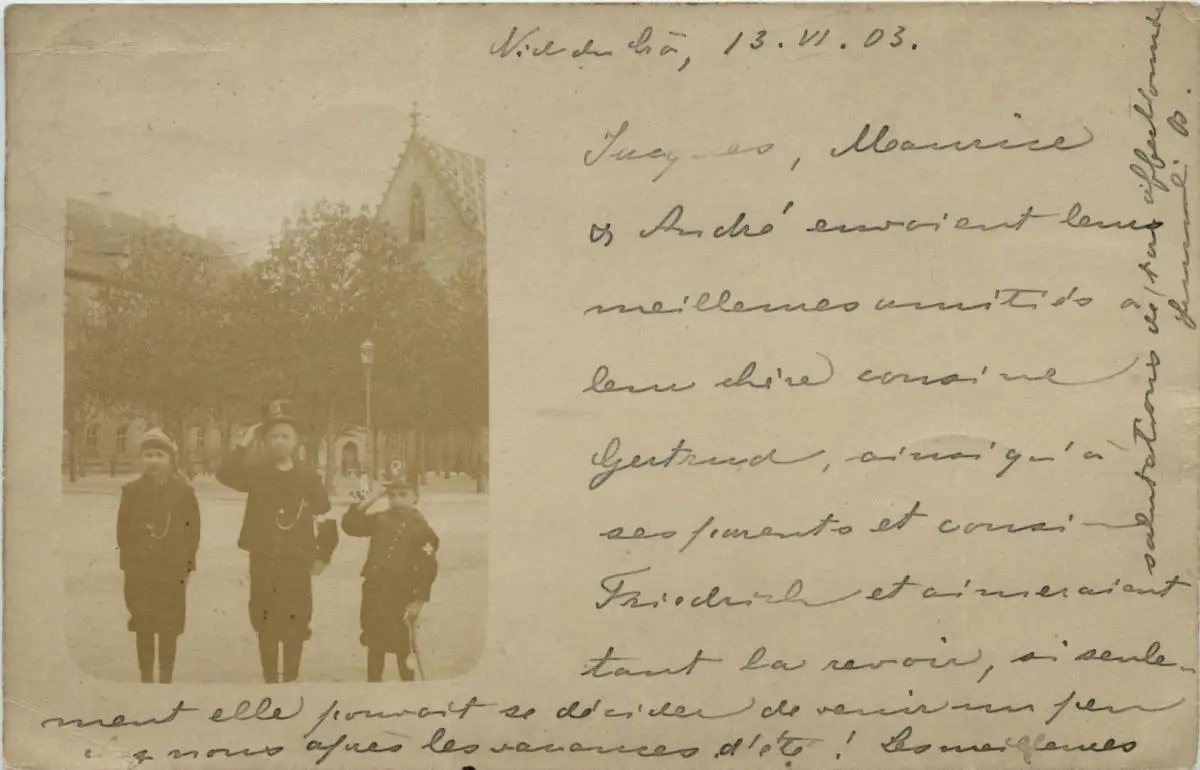 Nid du Crô, 13.VI.03.
Jacques, Maurice
& André envoient leurs
meilleures amitiés à
leur chère cousine
Gertrud, ainsi qu'à
ses parents et cousin
Friedrich et aimeraient
tant la revoir, si seule-
ment elle pouvait se décider de venir un peu
chez nous après les vacances d'été! Les meilleures
salutations de ton affectionnée
B.